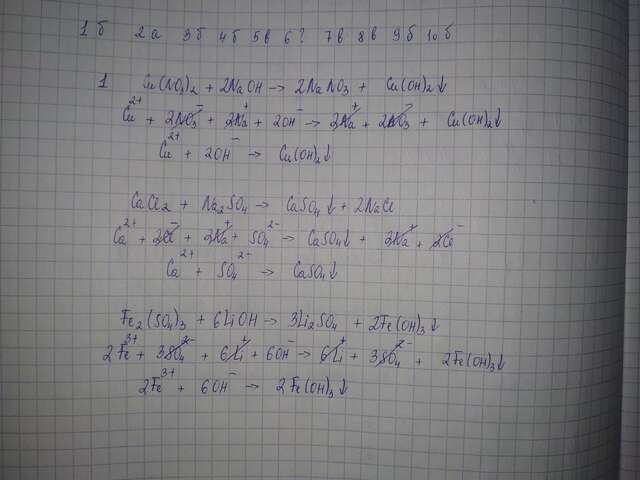 1 б 2 а 3 б 4 б 5 в 6 ? 7 в 8 в 9 б 10 б
1 Cu(NO₃)₂ + 2NaOH → 2NaNO₃ + Cu(OH)₂↓
Cu²⁺ + 2NO₃⁻ + 2Na⁺ + 2OH⁻ → 2Na⁺ + 2NO₃⁻ + Cu(OH)₂↓
Cu²⁺ + 2OH⁻ → Cu(OH)₂↓
CaCl₂ + Na₂SO₄ → CaSO₄↓ + 2NaCl
Ca²⁺ + 2Cl⁻ + 2Na⁺ + SO₄²⁻ → CaSO₄↓ + 2Na⁺ + 2Cl⁻
Ca²⁺ + SO₄²⁻ → CaSO₄↓
Fe₂(SO₄)₃ + 6LiOH → 3Li₂SO₄ + 2Fe(OH)₃↓
2Fe³⁺ + 3SO₄²⁻ + 6Li⁺ + 6OH⁻ → 6Li⁺ + 3SO₄²⁻ + 2Fe(OH)₃↓
2Fe³⁺ + 6OH⁻ → 2Fe(OH)₃↓